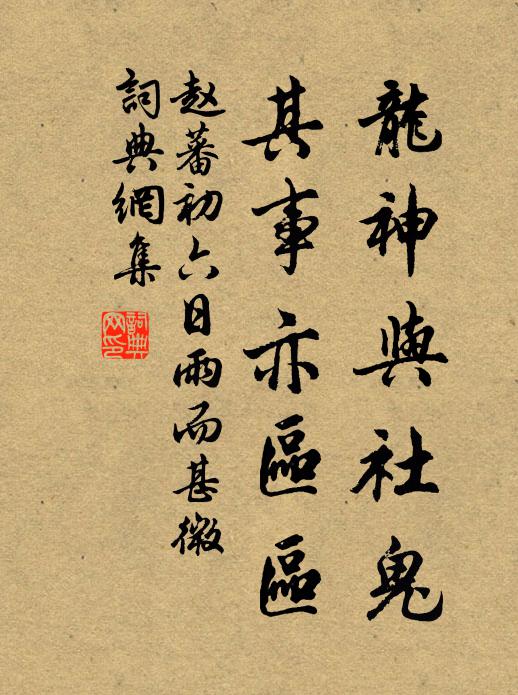 龍神與社鬼
其事亦區區
赵蕃初六日雨而甚微
詞典網集
詞典
网印